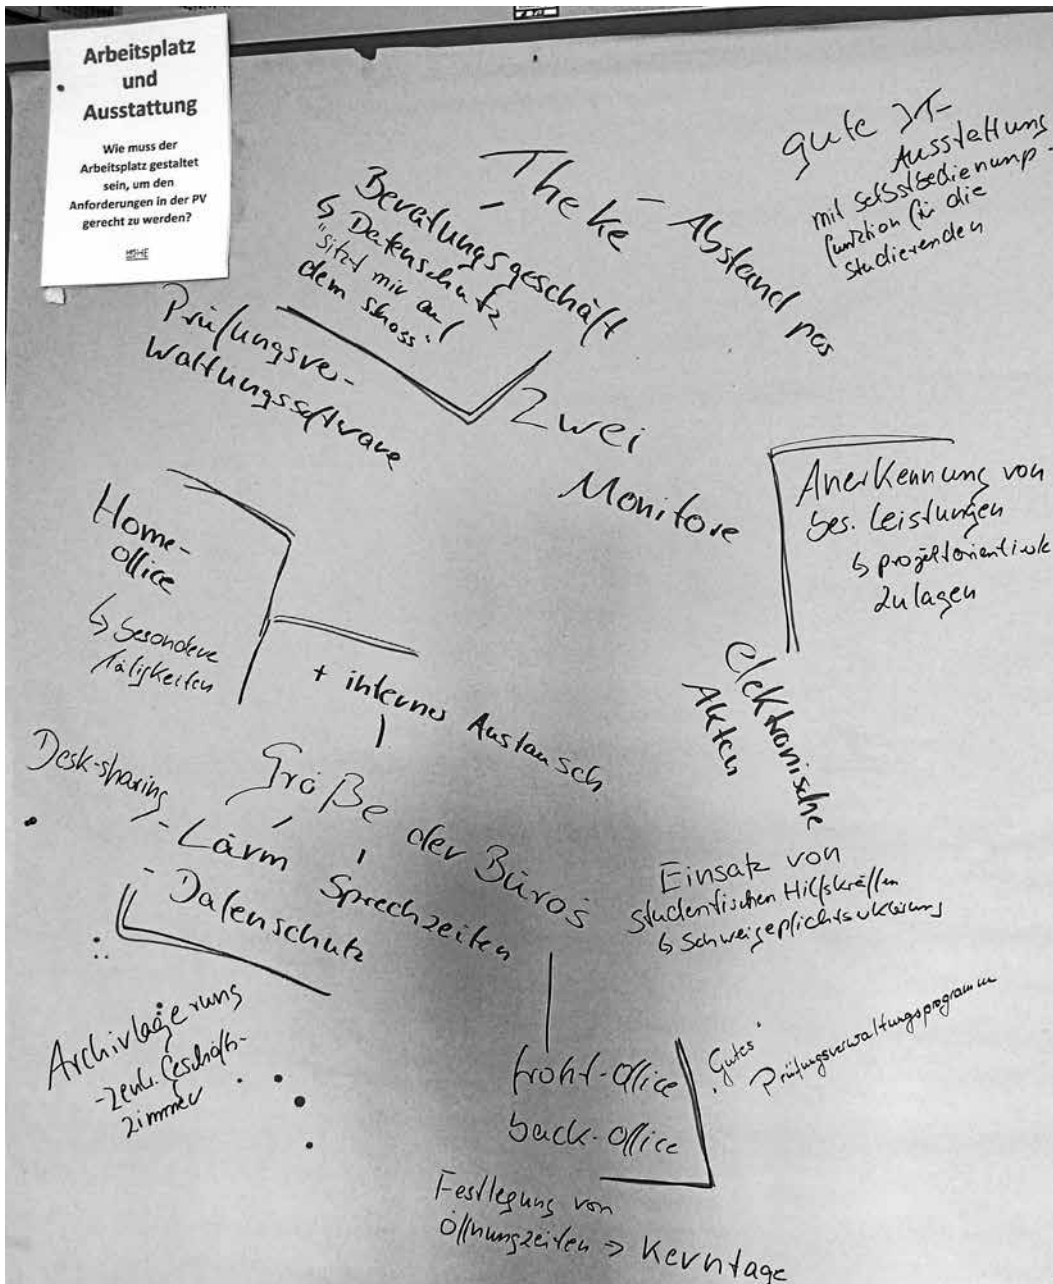 Arbeitsplatz
und
Ausstattung
Wie muss der
Arbeitsplatz gestaltet
sein, um den
Anforderungen in der PV
gerecht zu werden?
Theke
- Abstand
Beratungsgeschäft
↳ Datenschutz
"sitzt mir auf
dem shoss"
gute IT-
Ausstattung
mit Selbstbedienungs-
funktion für die
Studierenden
Prüfungsver-
waltungssoftware
Zwei
Monitore
Anerkennung von
bes. Leistungen
↳ projektorientierte
Zulagen
Home-
office
↳ besondere
Tätigkeiten
+ interner Austausch
elektronische
Akten
Desk-sharing
Größe der Büros
- Lärm
Sprechzeiten
- Datenschutz
Einsatz von
studentischen Hilfskräften
↳ Schweigepflichtserklärung
Archivlagerung
- zentr. Geschäfts-
zimmer
front-office
back-office
"Gutes"
Prüfungsverwaltungsprogramm
Festlegung von
Öffnungzeiten ⇒ Kerntage